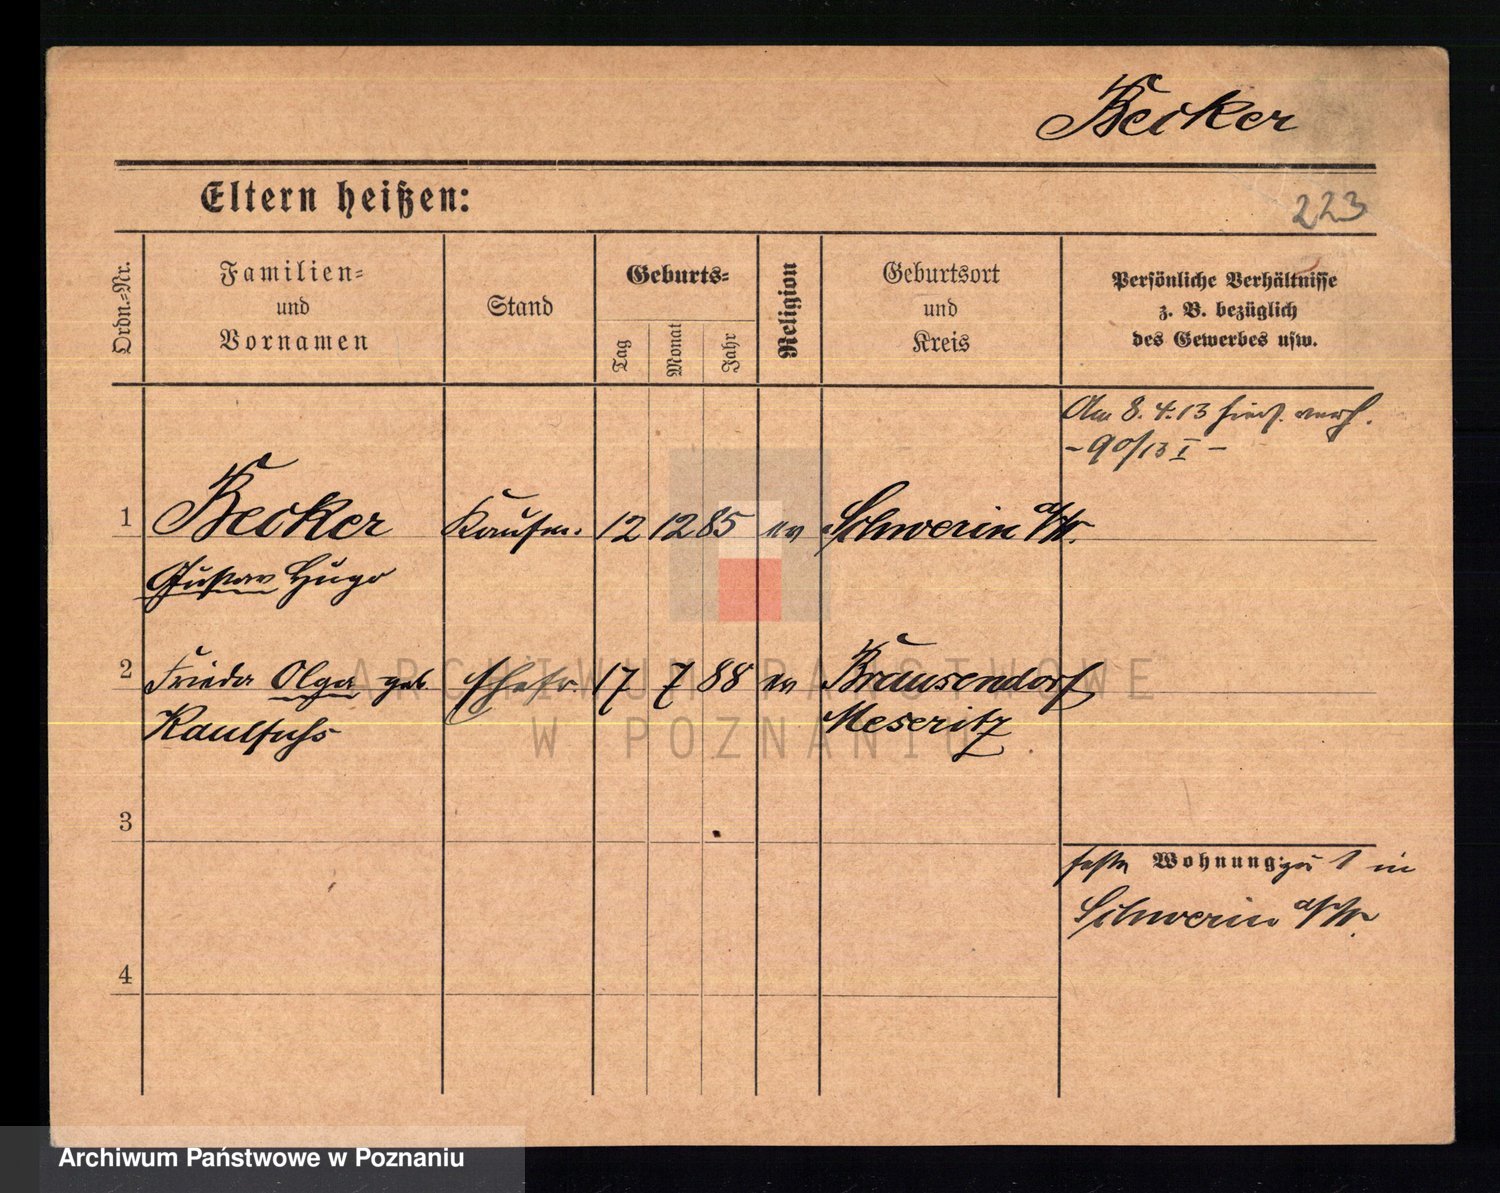 Becker
Eltern heißen:
223
Ordn.-Nr.
Familien-
und
Vornamen
Stand
Geburts-
Tag
Monat
Jahr
Religion
Geburtsort
und
Kreis
Persönliche Verhältnisse
z. B. bezüglich
des Gewerbes usw.
Am 8. 4. 13 hies. verh.
- 90/13 I -
1 Becker Kaufm. 12 12 85 ev Schwerin a/W.
Gustav Hugo
2 Frieda Olga geb. Ehefr. 17 7 88 ev Brausendorf
Kaulfuhs Meseritz
3
feste Wohnung: zu 1 in
Schwerin a/W.
4
ARCHIWUM PAŃSTWOWE
W POZNANIU
Archiwum Państwowe w Poznaniu